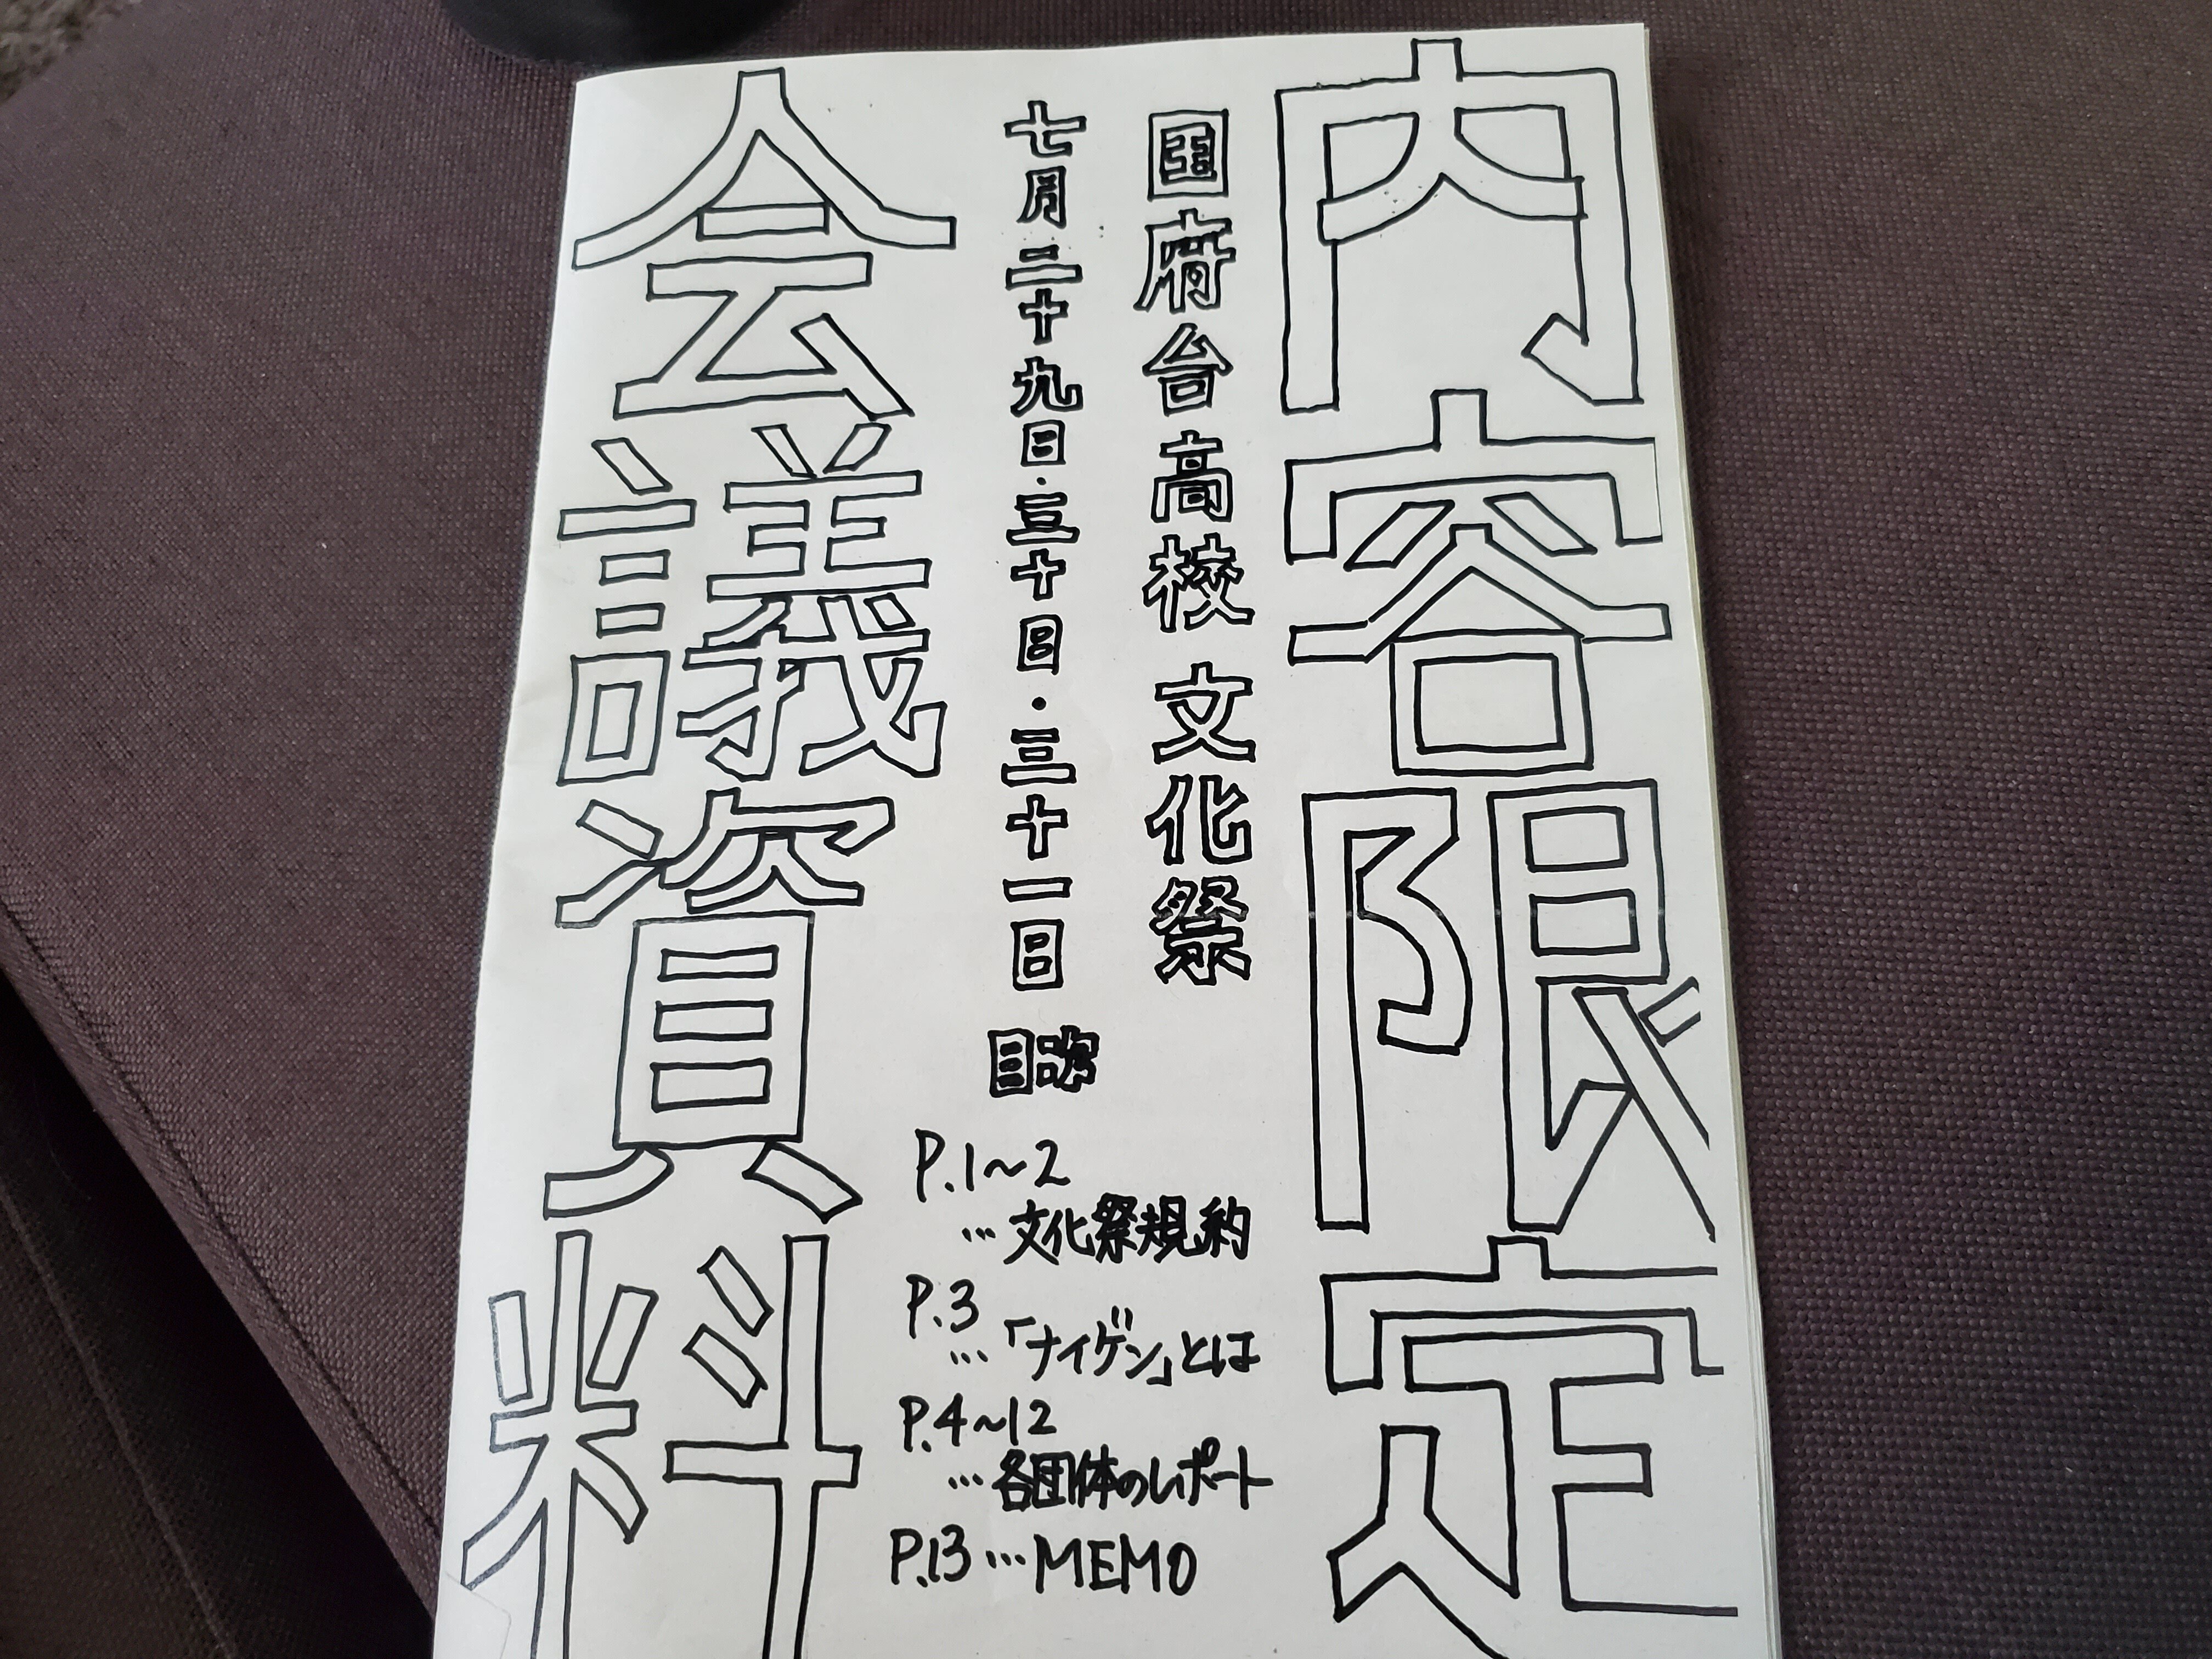 内容限定
国府台高校 文化祭
七月二十九日・三十日・三十一日
会議資料
目次
P.1~2
…文化祭規約
P.3
…「ナイゲン」とは
P.4~12
…各団体のレポート
P.13…MEMO